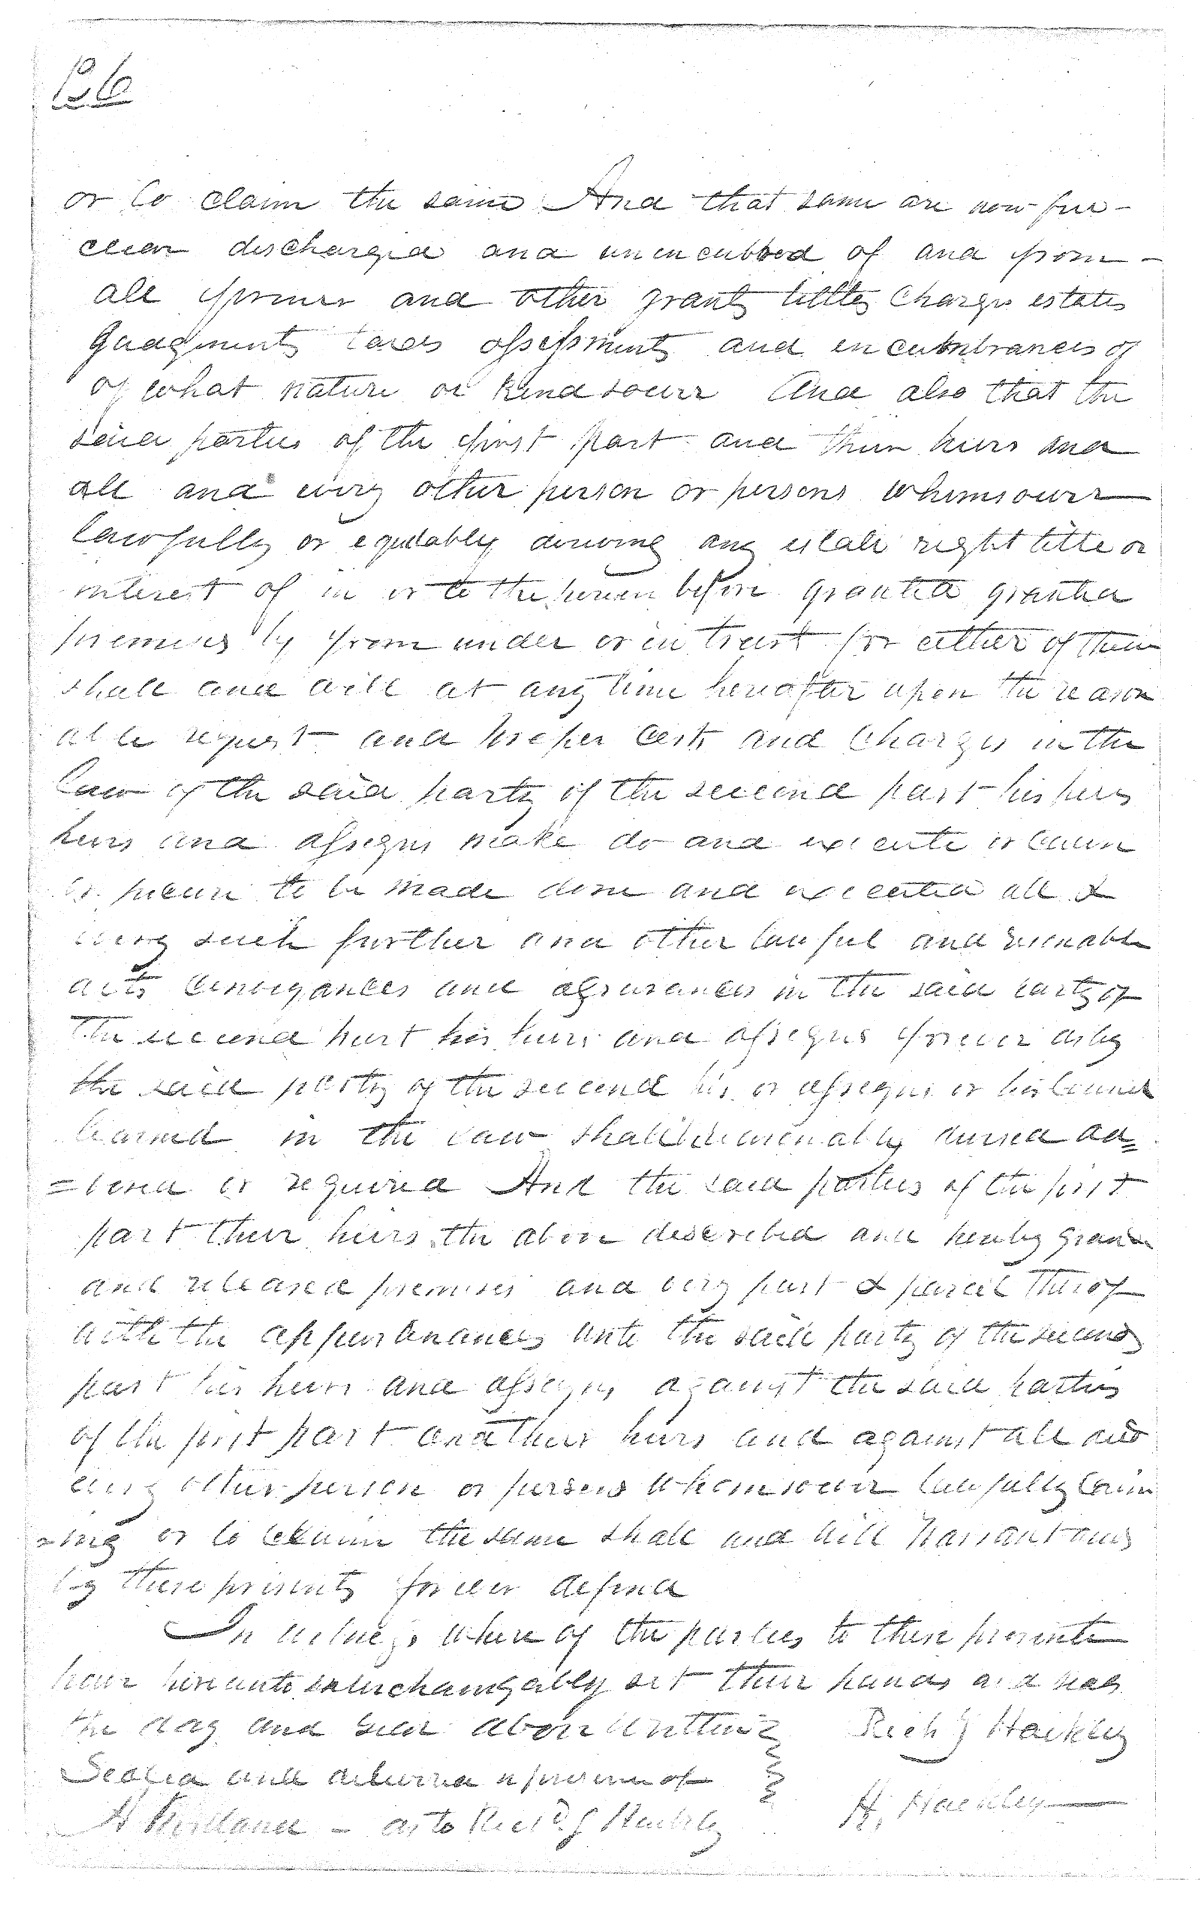 or to claim the same And that same are now free
clear discharged and unencubbed of and from
all former and other grants titles charges estates
Judgments taxes assessments and encumbrances of
of what nature or kind soever And also that the
said parties of the first part and their heirs and
all and every other person or persons whomsoever
lawfully or equitably deriving any estate right title or
interest of in or to the herein before granted granted
premises by from under or in trust for either of them
shall and will at any time hereafter upon the reason
able request and proper costs and charges in the
law of the said party of the second part his heirs
heirs and assigns make do and execute or cause
or procure to be made done and executed all &
every such further and other lawful and reasonable
acts conveyances and assurances in the said party of
the second part his heirs and assigns forever as by
the said party of the second his or assigns or his counsel
learned in the law shall be reasonably devised ad=
=vised or required And the said parties of the first
part their heirs the above described and hereby granted
and released premises and every part & parcel thereof
with the appurtenances unto the said party of the second
part his heirs and assigns against the said parties
of the first part and their heirs and against all and
every other person or persons whomsoever lawfully claim
=ing or to claim the same shall and will warrant and
by these presents forever defend
In witness where of the parties to these presents
have hereunto interchangably set their hands and seals
the day and year above written Rich J Hackley
Sealed and delivered in presence of
H. Hackley
as to Richd J Hackley